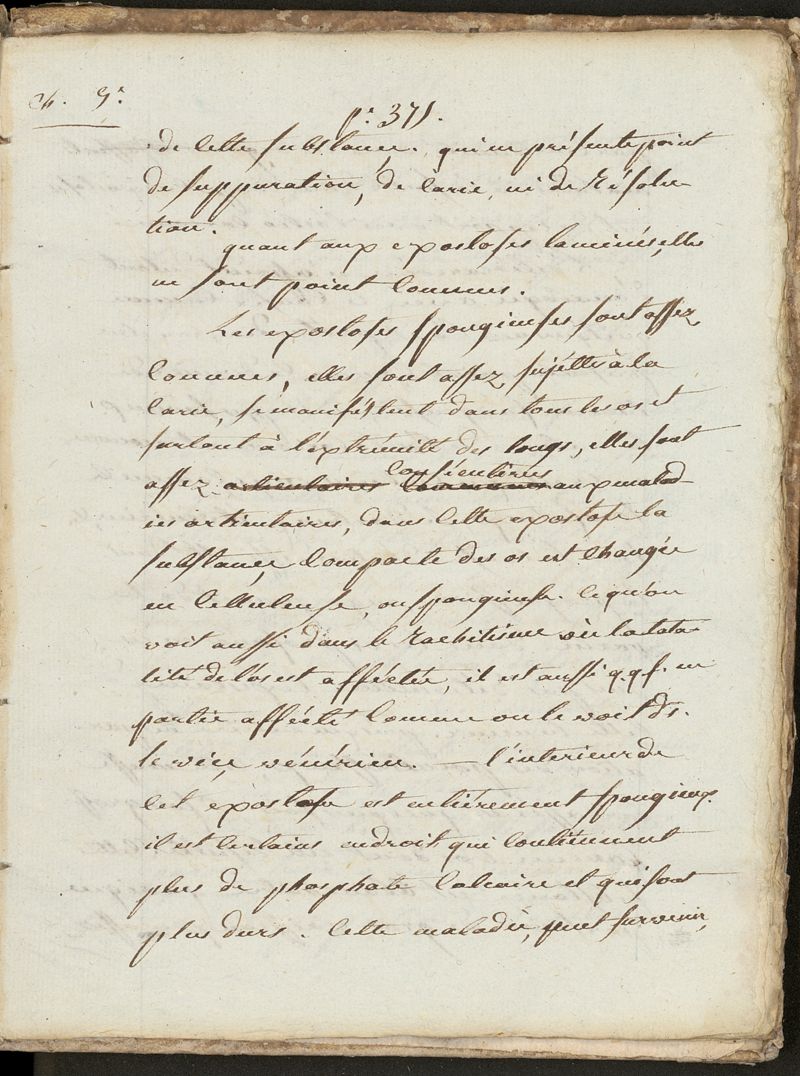 Ch. 5.e
p.e 371.
de cette substance. qui ne présente point
de suppuration, de carie, ni de Résolu-
tion.
quant aux exostoses laminés, elles
ne sont point connues.
Les exostoses spongieuses sont assez
connues, elles sont assez sujettes à la
carie, se manifestent dans tous les os et
surtout à l'extrémité des longs, elles sont
assez articulaires communes conséentives aux malad-
ies articulaires, dans cette exostose la
substance compacte des os est changée
en celluleuse, ou spongieuse. ce qu'on
voit aussi dans le Rachitisme où la tota-
lité de l'os est afféctée, il est aussi q.q.f. en
partie afféctté comme on le voit ds.
le vice vénérien. — l'interieur de
cet éxostose est entièrement spongieux.
il est certains endroit qui contiennent
plus de phosphate calcaire et qui sont
plus durs. Cette maladie, peut survenir,